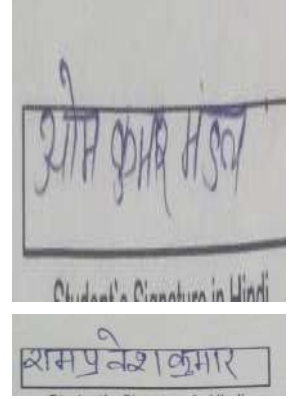 ओम कुमार मंडल
Student's Signature in Hindi
रामप्रवेश कुमार